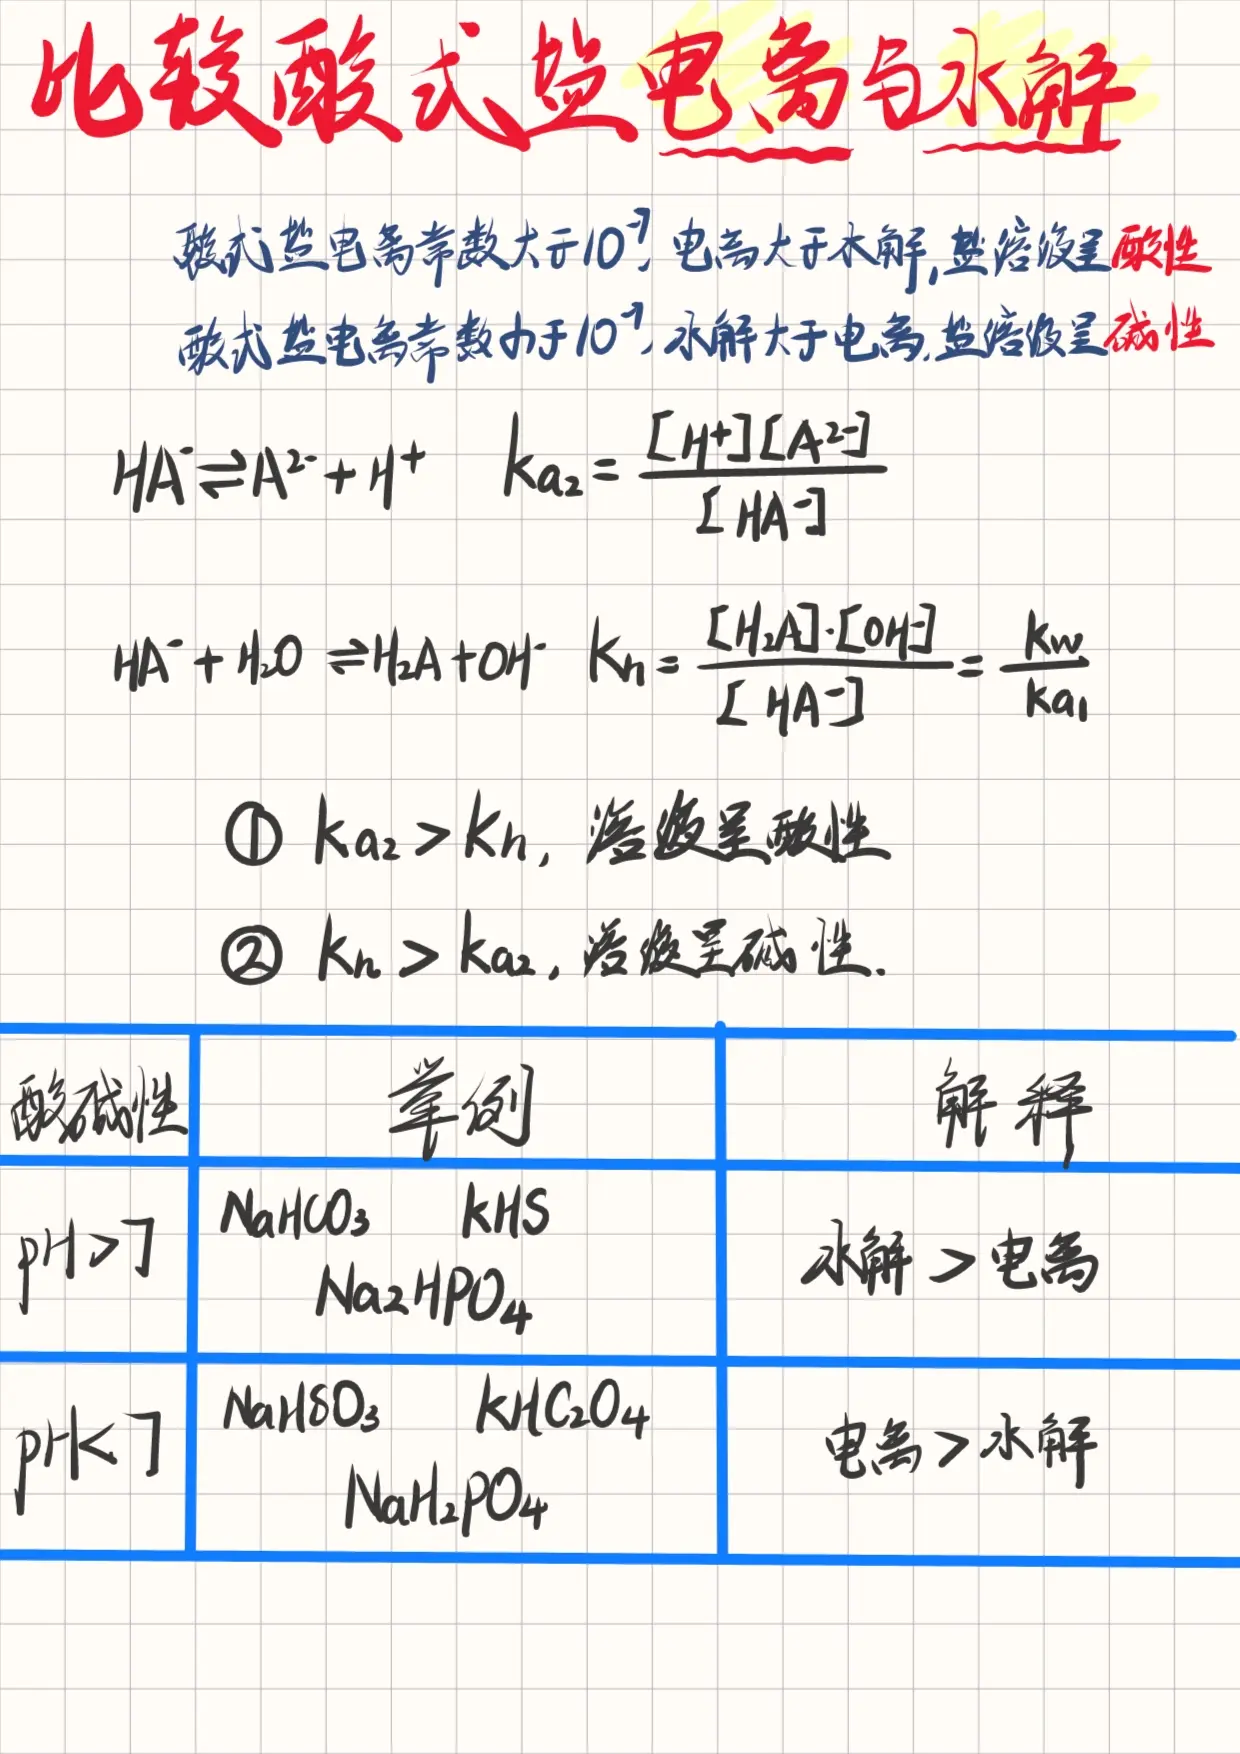 比较酸式盐电离与水解
酸式盐电离常数大于10⁻⁷,电离大于水解,盐溶液呈酸性
酸式盐电离常数小于10⁻⁷,水解大于电离,盐溶液呈碱性
HA⁻⇌A²⁻+H⁺ ka₂=[H⁺][A²⁻]/[HA⁻]
HA⁻+H₂O⇌H₂A+OH⁻ kh=[H₂A]·[OH⁻]/[HA⁻]=kw/ka₁
① ka₂>kh,溶液呈酸性
② kh>ka₂,溶液呈碱性.
酸碱性 举例 解释
pH>7 NaHCO₃ kHS 水解>电离
Na₂HPO₄
pH<7 NaHSO₃ kHC₂O₄ 电离>水解
NaH₂PO₄